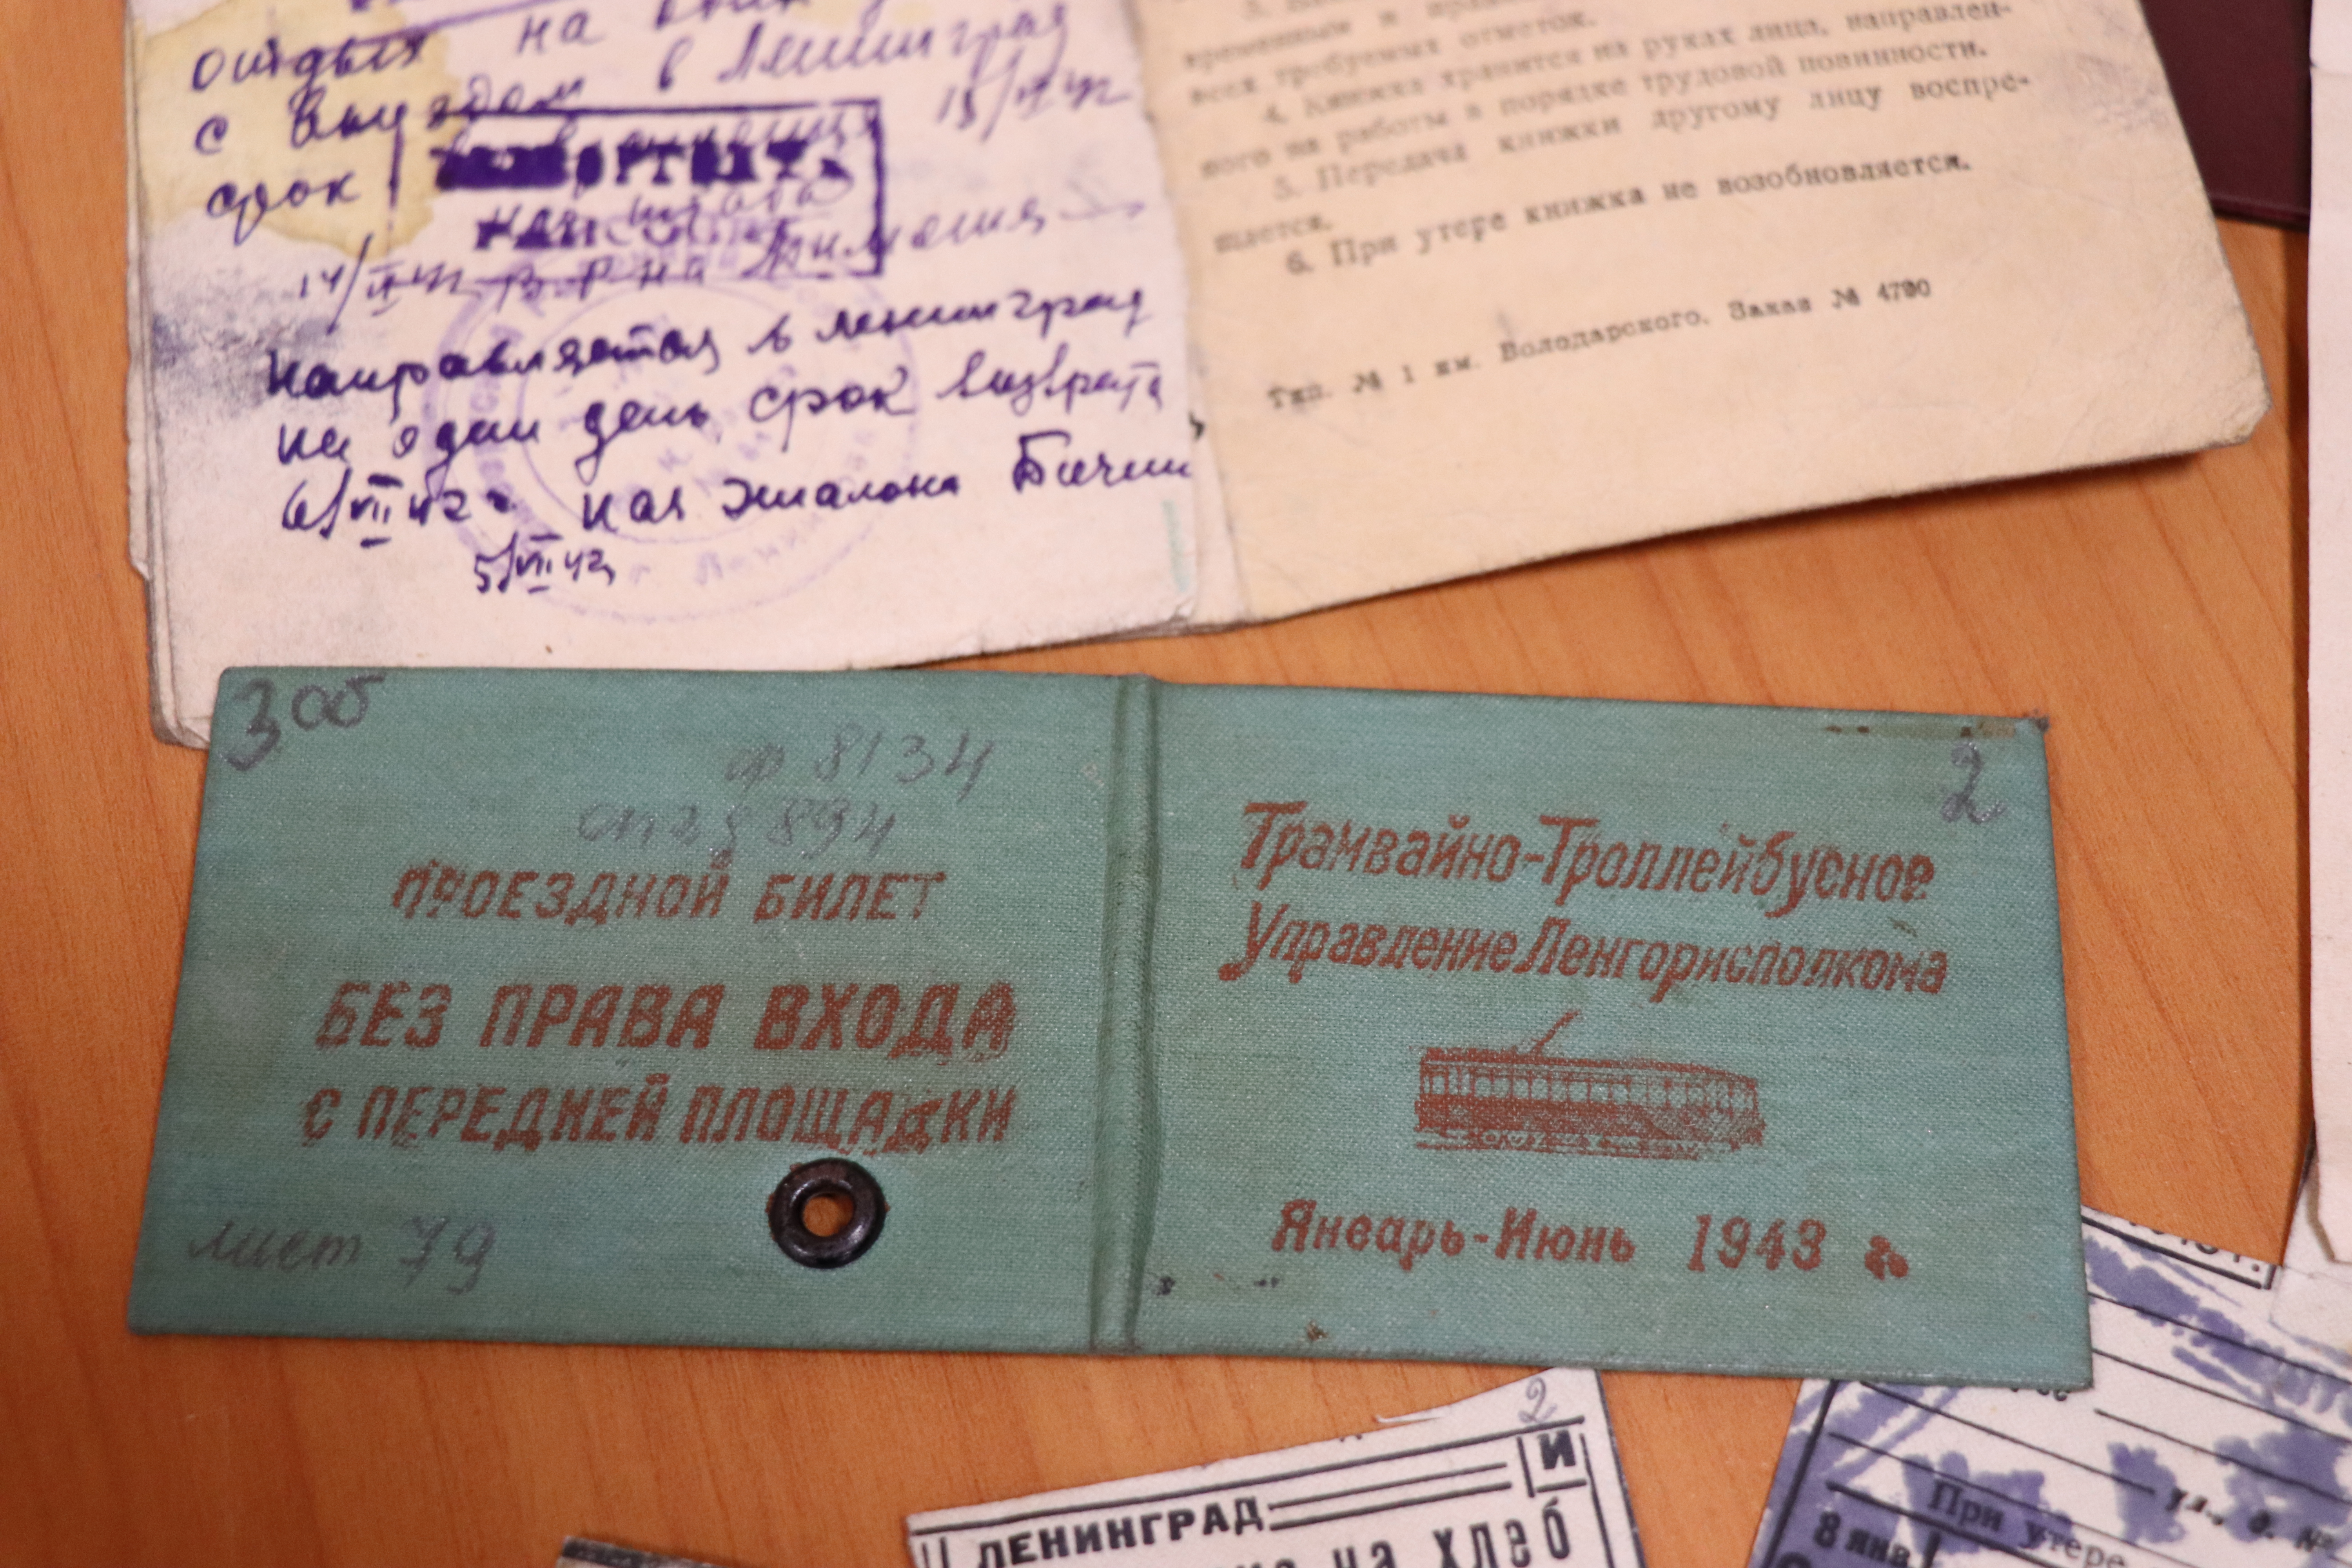 отдых на
с выездом в Ленинград
срок
14/II 42
Направляется в Ленинград
на один день срок возврата
6/VII 42 г. нач эшалона
5/VII 42
временным и
всех требуемых отметок.
4. Книжка хранится на руках лица, направлен-
ного на работы в порядке трудовой повинности.
5. Передача книжки другому лицу воспре-
щается.
6. При утере книжка не возобновляется.
Тип. № 1 им. Володарского. Заказ № 4790
3 об
ф 8134
оп 28 894
ПРОЕЗДНОЙ БИЛЕТ
БЕЗ ПРАВА ВХОДА
С ПЕРЕДНЕЙ ПЛОЩАДКИ
лист 79
2
Трамвайно-Троллейбусное
Управление Ленгорисполкома
Январь-Июнь 1943 г.
2
И
ЛЕНИНГРАД
на хлеб
ул., д. №
При утере
8 янв.